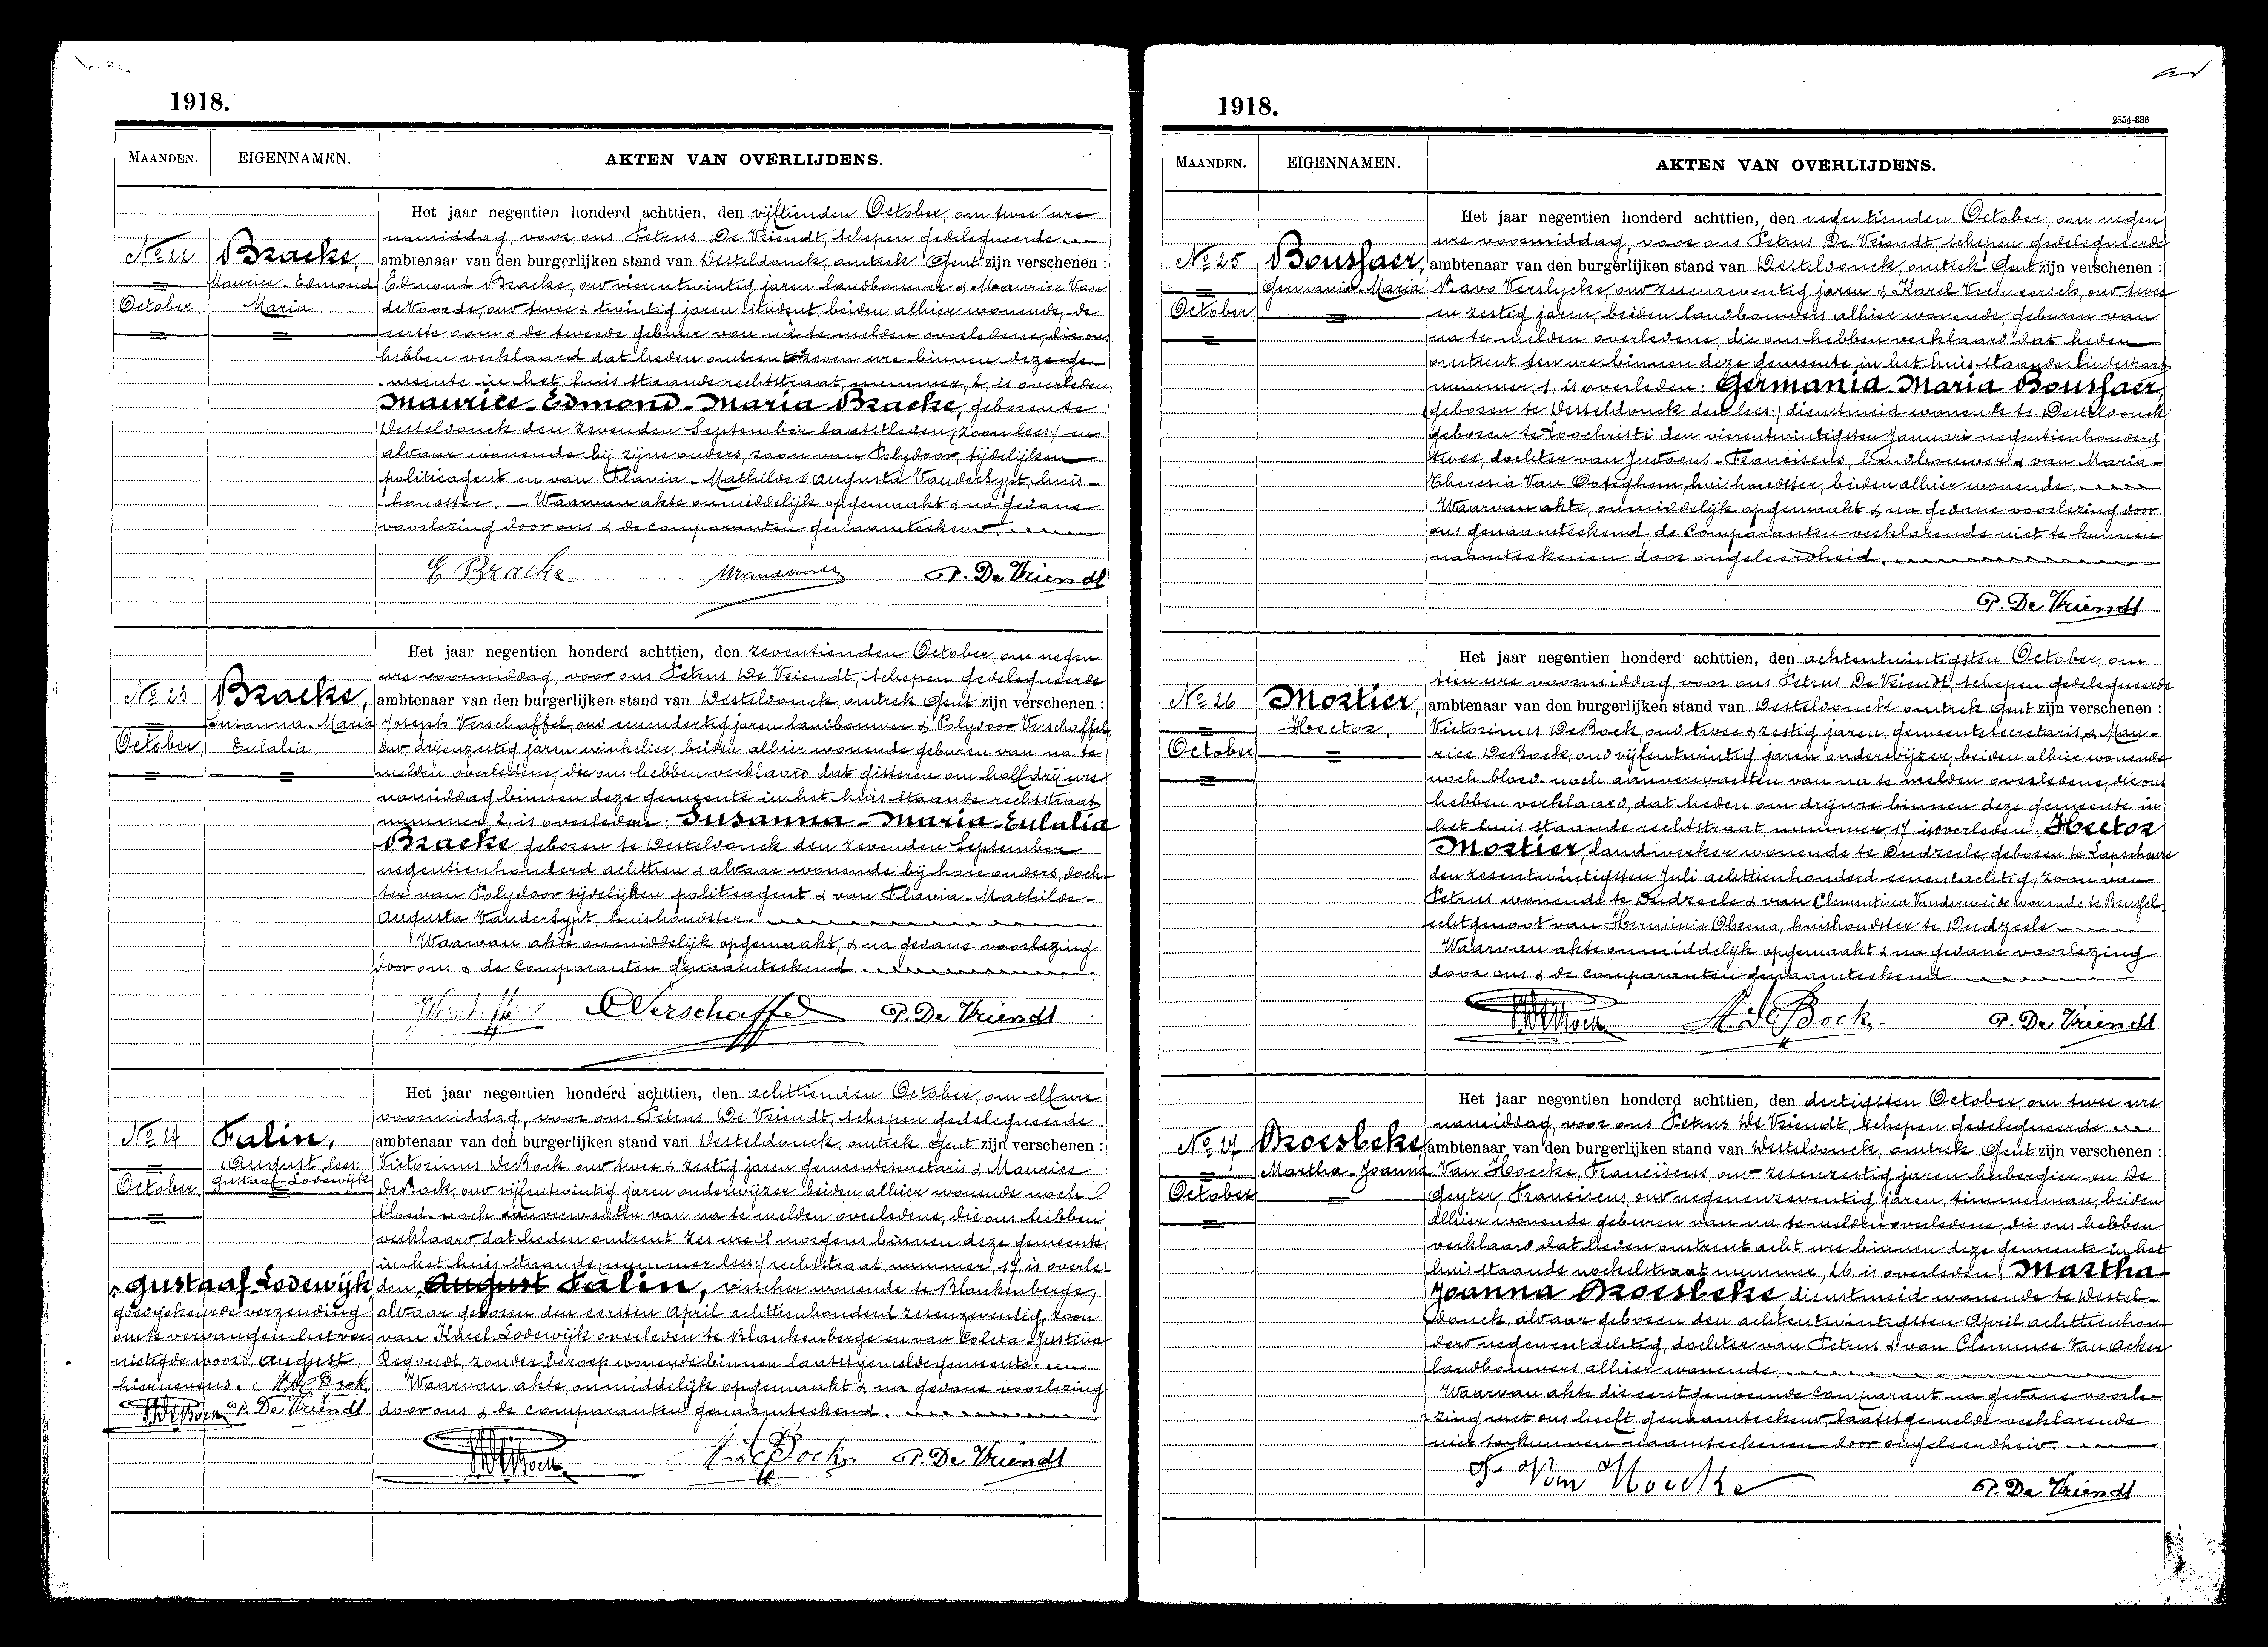 1918.
MAANDEN. EIGENNAMEN. AKTEN VAN OVERLIJDENS.
No 22
Bracke,
Maurice-Edmond
Maria
October
Het jaar negentien honderd achttien, den vijftienden October, om twee ure
namiddag, voor ons Petrus De Vriendt, schepen gedelegueerde
ambtenaar van den burgerlijken stand van Desteldonck, omtrek Gent zijn verschenen :
Edmond Bracke, oud vierentwintig jaren landbouwer & Maurice Van
de Voorde, oud twee & twintig jaren student, beiden alhier wonende, de
eerste oom & de tweede gebuur van na te melden overledene, die ons
hebben verklaard dat heden omtrent zeven ure binnen deze ge-
meente in het huis staande rechtstraat, nummer, 2, is overleden
Maurice-Edmond-Maria Bracke, geboren te
Desteldonck den zevenden September laatstleden (zoon lees:) en
aldaar wonende bij zijne ouders, zoon van Polydoor, tijdelijken
politieagent en van Flavia-Mathilde & Augusta Vandersypt, huis-
houdster. — Waarvan akte onmiddelijk opgemaakt & na gedane
voorlezing door ons & de comparanten genaamteekend.
E Bracke P. De Vriendt
No 23
Bracke,
Susanna-Maria
Eulalia.
October
Het jaar negentien honderd achttien, den zeventienden October, om negen
ure voormiddag, voor ons Petrus De Vriendt, schepen gedelegueerde
ambtenaar van den burgerlijken stand van Desteldonck, omtrek Gent zijn verschenen :
Joseph Verschaffel, oud eenendertig jaren landbouwer & Polydoor Verschaffel,
oud drijenzestig jaren winkelier beiden alhier wonende geburen van na te
melden overledene, die ons hebben verklaard dat gisteren om half drij ure
namiddag binnen deze gemeente in het huis staande rechtstraat
nummer, 2, is overleden: Susanna-Maria-Eulalia
Bracke geboren te Desteldonck den zevenden September
negentienhonderd achttien & aldaar wonende bij hare ouders, doch-
ter van Polydoor tijdelijken politieagent & van Flavia-Mathilde-
Augusta Vandersypt, huishoudster.
Waarvan akte onmiddelijk opgemaakt, & na gedane voorlezing
door ons & de comparanten genaamteekend.
Verschaffel P. De Vriendt
No 24
Falin,
(August lees:
Gustaaf-Lodewijk
October
Het jaar negentien honderd achttien, den achttienden October, om elf ure
voormiddag, voor ons Petrus De Vriendt, schepen gedelegueerde
ambtenaar van den burgerlijken stand van Desteldonck, omtrek Gent zijn verschenen :
Victorinus DeBock, oud twee & zestig jaren gemeentesecretaris & Maurice
DeBock, oud vijfentwintig jaren onderwijzer beiden alhier wonende noch
bloed- noch aanverwanten van na te melden overledene, die ons hebben
verklaard, dat heden omtrent zes ure 's morgens binnen deze gemeente
in het huis staande (nummer lees:) rechtstraat, nummer, 17, is overle-
den, August Falin, visscher wonende te Blankenberge,
aldaar geboren den eersten April achttienhonderd zesenzeventig, zoon
van Karel Lodewijk overleden te Blankenberge en van Coleta Justina
Regoudt, zonder beroep wonende binnen laatstgemelde gemeente.
Waarvan akte, onmiddelijk opgemaakt & na gedane voorlezing
door ons & de comparanten genaamteekend.
Gustaaf Lodewijk,
goedgekeurde verzending
om te vervangen het ver-
nietigde woord, August,
hiernevens. M. de Bock
P. De Vriendt
M. de Bock P. De Vriendt
1918.
2854-336
MAANDEN. EIGENNAMEN. AKTEN VAN OVERLIJDENS.
No 25
Boussaer,
Germania-Maria
October
Het jaar negentien honderd achttien, den negentienden October, om negen
ure voormiddag, voor ons Petrus De Vriendt, schepen gedelegueerde
ambtenaar van den burgerlijken stand van Desteldonck, omtrek Gent zijn verschenen :
Bavo Verslycke, oud zesenzeventig jaren & Karel Vermeersch, oud twee
en zestig jaren, beiden landbouwers alhier wonende, geburen van
na te melden overledene, die ons hebben verklaard dat heden
omtrent een ure binnen deze gemeente in het huis staande Lindestraat
nummer, 1, is overleden: Germania Maria Boussaer,
(geboren te Desteldonck den lees:) dienstmeid wonende te Desteldonck
geboren te Loochristi den vierentwintigsten Januari negentienhonderd
twee, dochter van Judocus-Franciscus, landbouwer & van Maria-
Theresia Van Ootighem, huishoudster, beiden alhier wonende.
Waarvan akte, onmiddelijk opgemaakt & na gedane voorlezing door
ons genaamteekend, de comparanten verklarende niet te kunnen
naamteekenen door ongeleerdheid.
P. De Vriendt
No 26
Mostier,
Hector.
October
Het jaar negentien honderd achttien, den achtentwintigsten October, om
tien ure voormiddag, voor ons Petrus De Vriendt, schepen gedelegueerde
ambtenaar van den burgerlijken stand van Desteldonck omtrek Gent zijn verschenen :
Victorinus DeBock, oud twee & zestig jaren, gemeentesecretaris & Mau-
rice DeBock, oud vijfentwintig jaren onderwijzer, beiden alhier wonende
noch bloed- noch aanverwanten van na te melden overledene, die ons
hebben verklaard, dat heden om drij ure binnen deze gemeente in
het huis staande rechtstraat, nummer, 17, is overleden: Hector
Mostier, landwerker wonende te Dudzeele, geboren te Lapscheure
den zesentwintigsten Juli achttienhonderd eenentachtig, zoon van
Petrus wonende te Dudzeele & van Clementina Vanderweide wonende te Brussel
echtgenoot van Herminie Obeens, huishoudster te Dudzeele
Waarvan akte onmiddelijk opgemaakt & na gedane voorlezing
door ons & de comparanten genaamteekend.
M. de Bock. P. De Vriendt
No 27
Broesbeke,
Martha-Joanna
October
Het jaar negentien honderd achttien, den dertigsten October, om twee ure
namiddag, voor ons Petrus De Vriendt, schepen gedelegueerde
ambtenaar van den burgerlijken stand van Desteldonck, omtrek Gent zijn verschenen :
Van Hoecke, Franciscus, oud zesenzestig jaren herbergier en De
Geyter, Franciscus, oud negenenzeventig jaren, timmerman, beiden
alhier wonende geburen van na te melden overledene, die ons hebben
verklaard dat heden omtrent acht ure binnen deze gemeente in het
huis staande nockelstraat nummer, 26, is overleden: Martha-
Joanna Broesbeke, dienstmeid wonende te Destel-
donck, aldaar geboren den achtentwintigsten April achttienhon-
derd negenentachtig, dochter van Petrus & van Clemence Van Acker
landbouwers alhier wonende.
Waarvan akte die eerstgenoemde comparant na gedane voorle-
zing met ons heeft genaamteekend, laatstgemelde verklarende
niet te kunnen naamteekenen door ongeleerdheid.
F. Van Hoecke P. De Vriendt